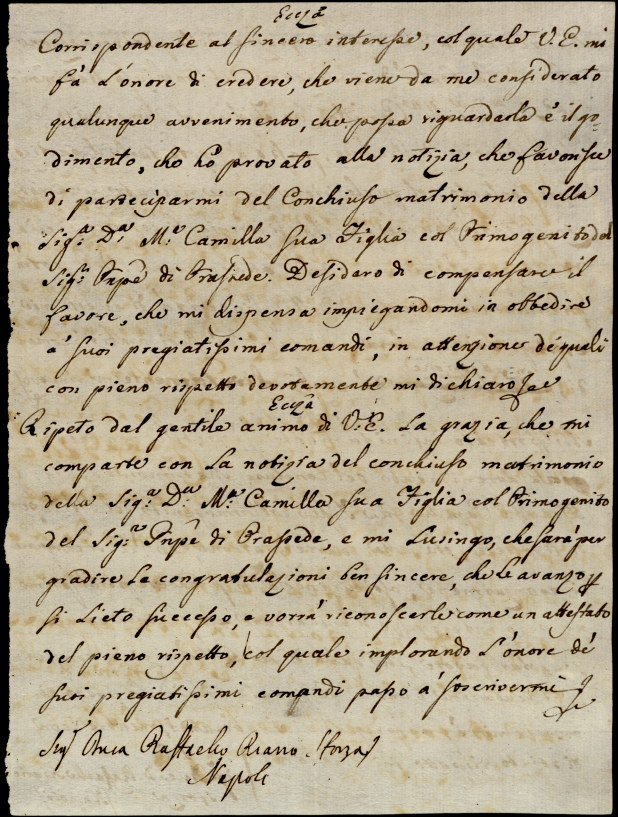 Ecczã
Corrispondente al sincero interesse, col quale V. E. mi
fà l'onore di credere, che viene da me considerato
qualunque avvenimento, che possa riguardarla è il go=
dimento, che hò provato alla notizia, che favorisce
di parteciparmi del Conchiuso matrimonio della
Sig.ª D.ª M.ª Camilla sua Figlia col Primogenito del
Sig.r Pnpê di Prassede. Desidero di compensare il
favore, che mi dispensa impiegandomi in obbedire
a' suoi pregiatissimi comandi, in attenzione de' quali
con pieno rispetto devotamente mi dichiaro
Ecczã
Ripeto dal gentile animo di V. E. la grazia, che mi
comparte con la notizia del conchiuso matrimonio
della Sig.ª D.ª M.ª Camilla sua Figlia col Primogenito
del Sig.r Pnpê di Prassede, e mi lusingo, che sarà per
gradire le congratulazioni ben sincere, che le avanzo
si lieto successo, e vorrà riconoscerle come un attestato
del pieno rispetto, col quale implorando l'onore de'
suoi pregiatissimi comandi passo a' soscrivermi
Sig.r Duca Raffaello Riario Sforza
Napoli